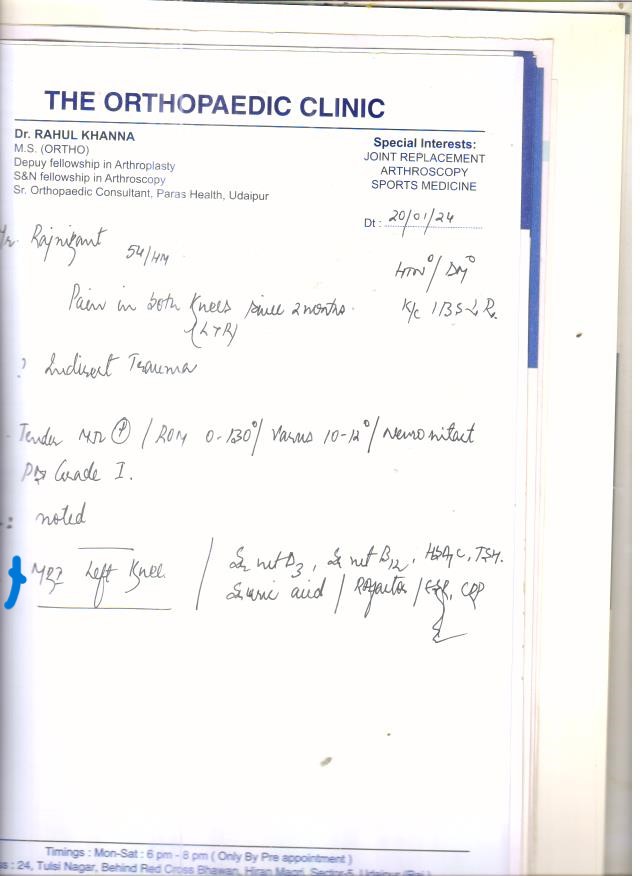 THE ORTHOPAEDIC CLINIC
Dr. RAHUL KHANNA
M.S. (ORTHO)
Depuy fellowship in Arthroplasty
S&N fellowship in Arthroscopy
Sr. Orthopaedic Consultant, Paras Health, Udaipur
Special Interests:
JOINT REPLACEMENT
ARTHROSCOPY
SPORTS MEDICINE
Dt : 20/01/24
Rajnikant 54/
HTN° / DM°
Pain in both Knees since 2 months.
K/c
(L>R)
? Indirect Trauma
Tender / ROM 0-130° / Varus 10-12° / Neuro intact
Grade I.
: noted
MRI Left Knee / Sr vit D3, Sr vit B12, HbA1C, TSH.
Sr uric acid / RA factor / ESR, CRP
Timings : Mon-Sat : 6 pm - 8 pm ( Only By Pre appointment )
ss : 24, Tulsi Nagar, Behind Red Cross Bhawan, Hiran Magri, Sector-5, Udaipur (Raj.)